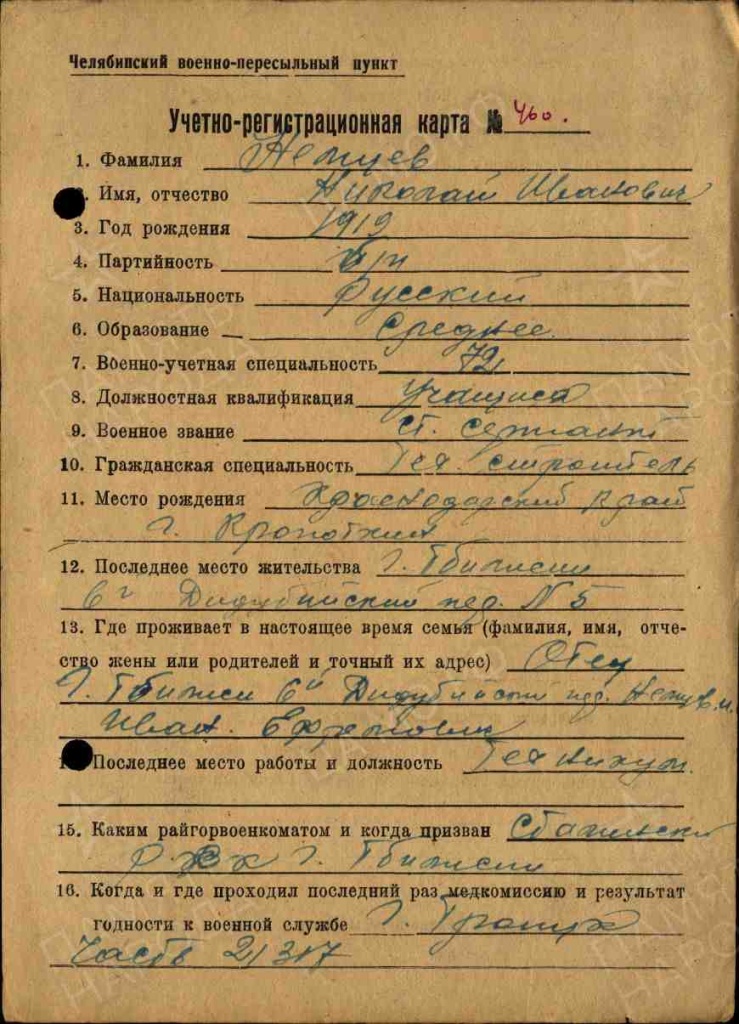 Челябинский военно-пересыльный пункт
Учетно-регистрационная карта № 460.
1. Фамилия Немцев
2. Имя, отчество Николай Иванович
3. Год рождения 1919
4. Партийность б/п
5. Национальность Русский
6. Образование Среднее
7. Военно-учетная специальность 121
8. Должностная квалификация Учащийся
9. Военное звание ст. сержант
10. Гражданская специальность Тех. строитель
11. Место рождения Краснодарский край
г. Кропоткин
12. Последнее место жительства г. Тбилиси
6й Дидубийский пер. N 5
13. Где проживает в настоящее время семья (фамилия, имя, отче-
ство жены или родителей и точный их адрес) Отец
г. Тбилиси 6й Дидубийский пер. Немцев
Иван. Ефремович
Последнее место работы и должность Техникум.
15. Каким райгорвоенкоматом и когда призван
РВК г. Тбилиси
16. Когда и где проходил последний раз медкомиссию и результат
годности к военной службе г.
Часть 21317